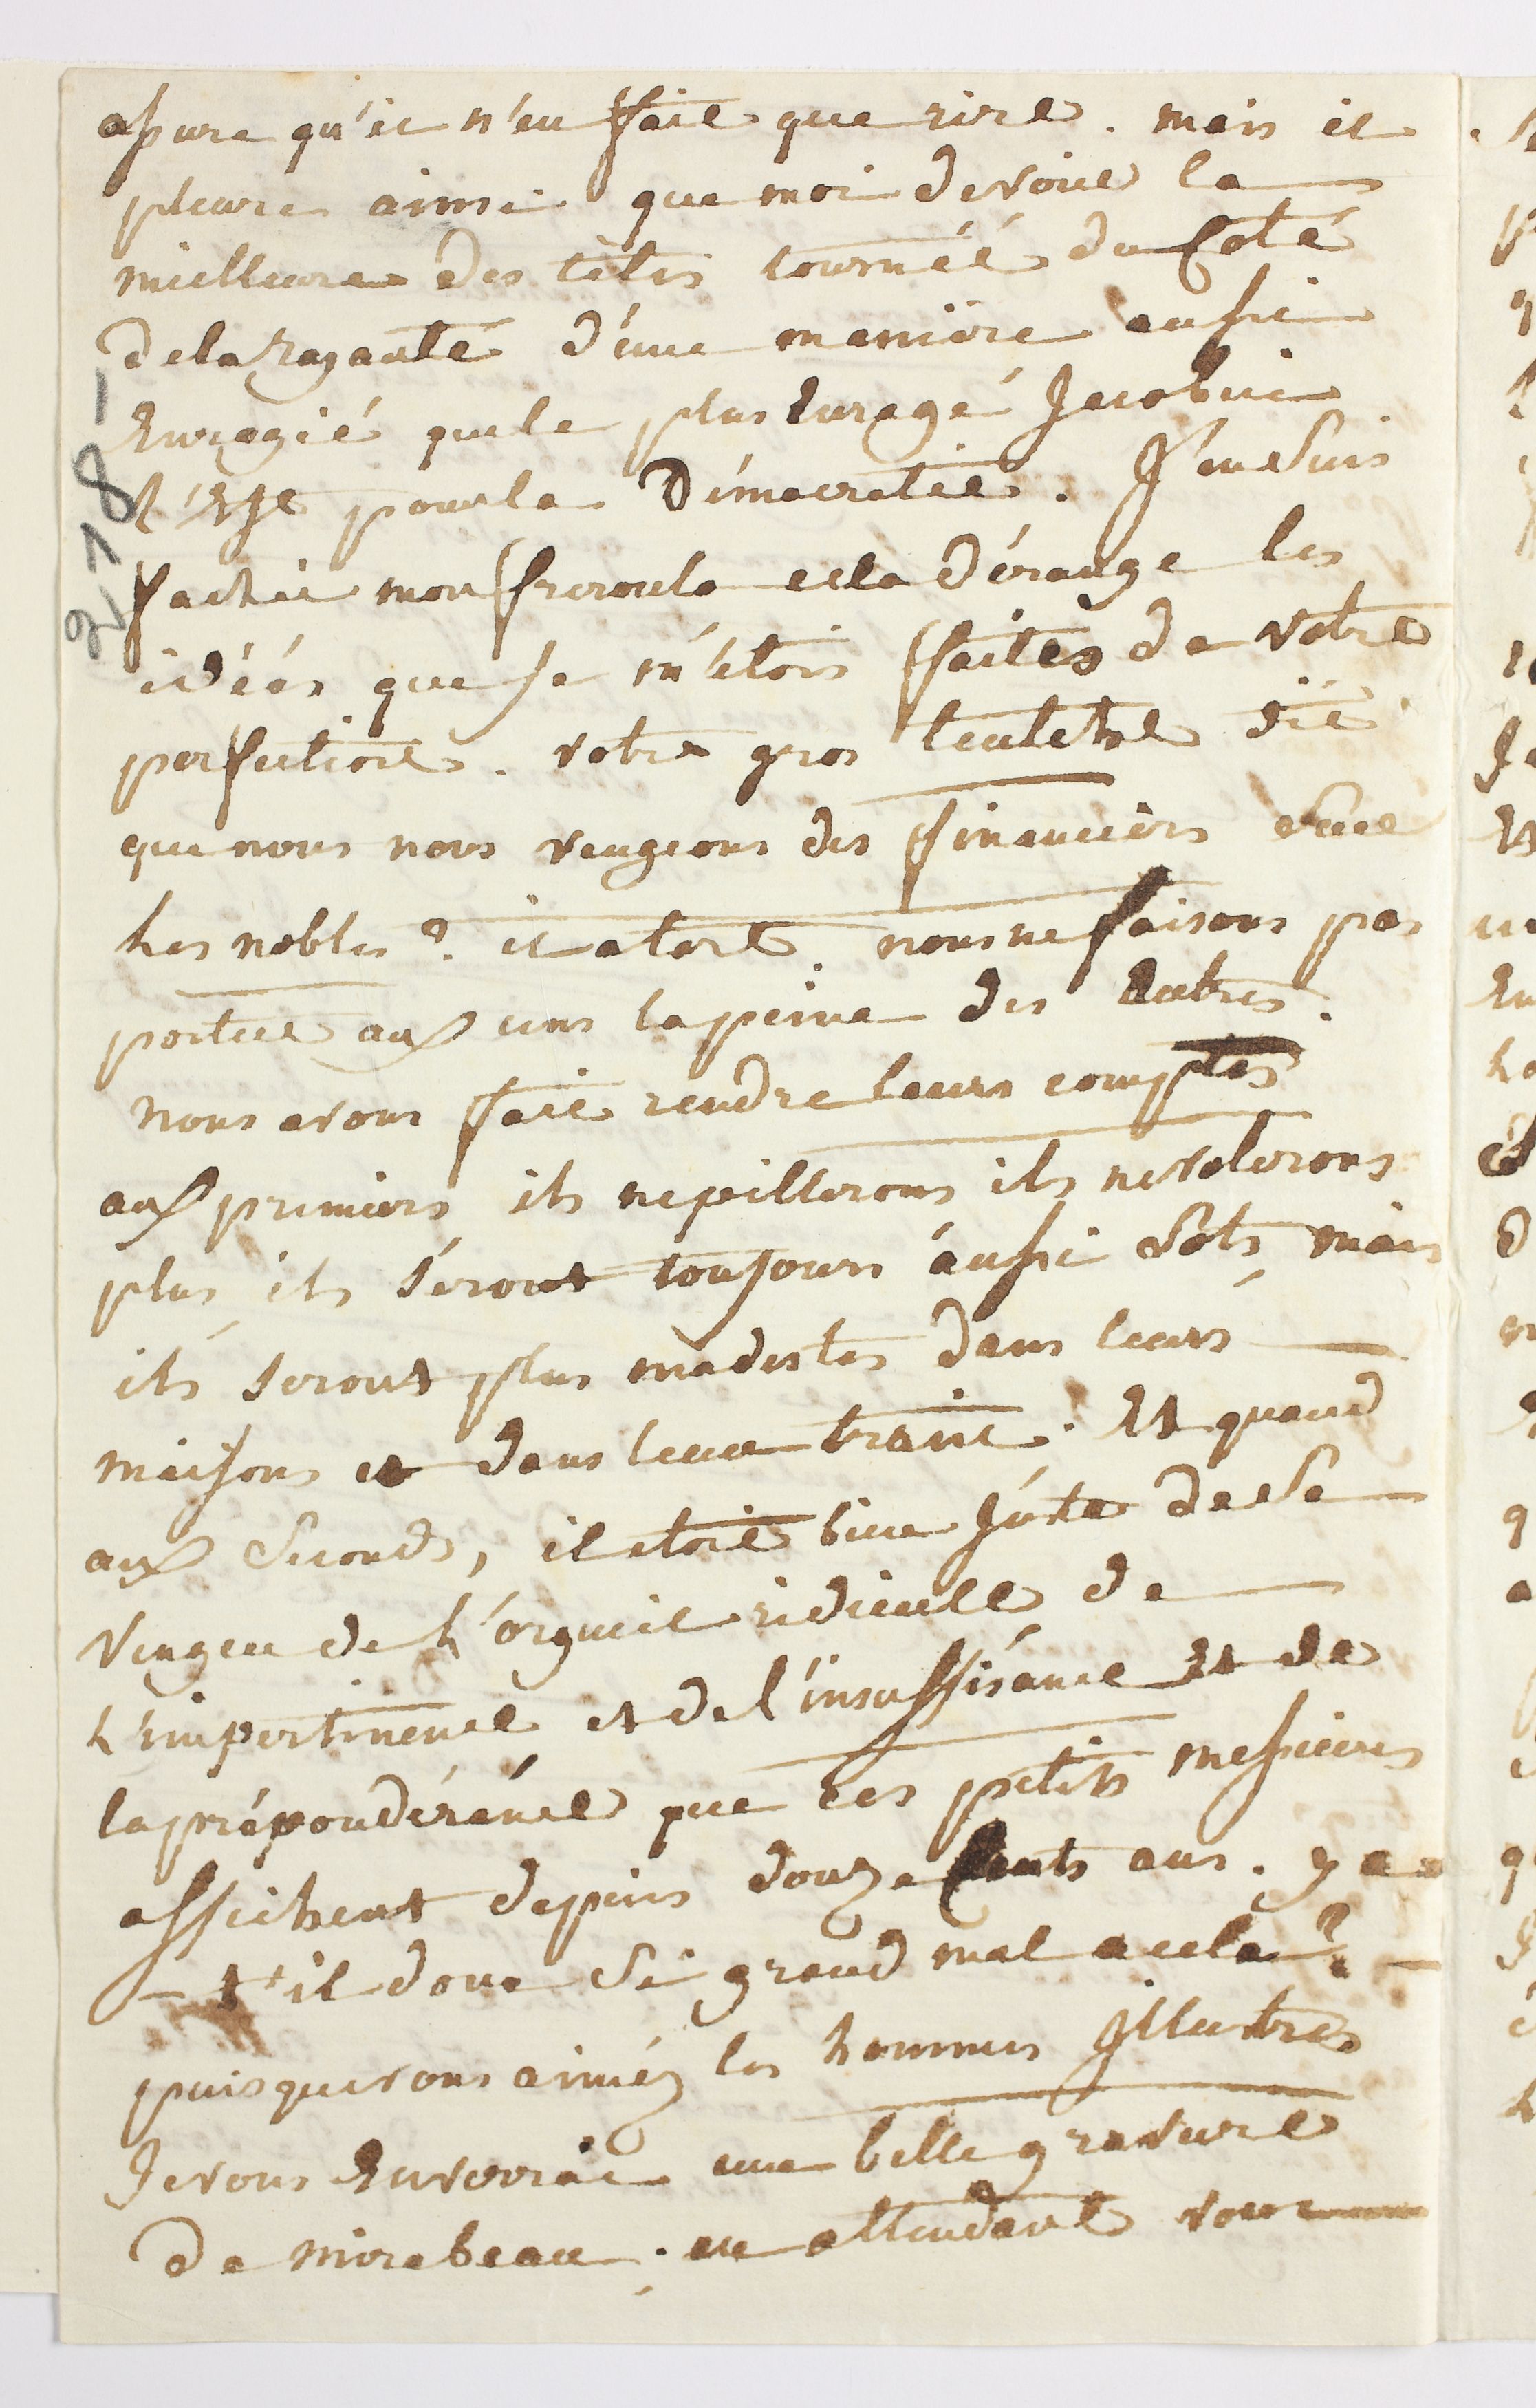 assure qu'il n'en fait que rire. mais il
pleure ainsi que moi de voir la
meilleure des têtes tournéé du Coté
de la royauté d'une maniere aussi
Enragié que le plus Enragé Jacobin
l'Est pour la Démocratie. J'en suis
fachée mon cela dérange les
idéés que je m'étois faites de votre
perfection. votre gros dit
que nous nous vengeons des financiers sur
Les nobles? il a tort. nous ne faisons pas
porter aux uns la peine des Autres.
nous avons fait rendre leurs comptes
aux premiers ils ne pillerons ils ne volerons
plus ils séront toujours aussi Sots mais
ils séront plus modestes dans leurs
maisons et dans leur train. Et quand
aux Seconds, il etoit bien Juste de se
venger de L'orgueil ridicule de
L'impertinence et de l'insuffisance Et de
la prépondérénce que ces petits messieurs
affichent depuis douze Cents ans. y a
-t'il donc si grand mal a cela? -
puisque vous aiméz les hommes Illustres
Je vous Enverrai une belle gravure
de mirabeau. en attendant vour
2,178-